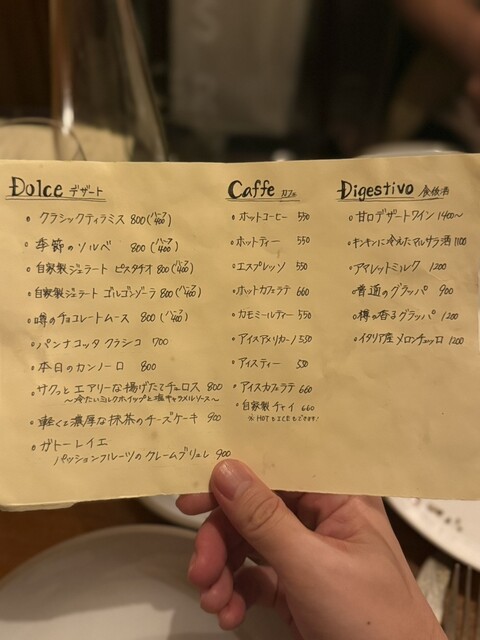 Dolce デザート
クラシックティラミス 800(ハーフ400)
季節のソルベ 800(ハーフ400)
自家製ジェラート ピスタチオ 800(ハーフ400)
自家製ジェラート ゴルゴンゾーラ 800(ハーフ400)
噂のチョコレートムース 800(ハーフ400)
パンナコッタ クラシコ 700
本日のカンノーロ 800
サクっとエアリーな揚げたてチュロス 800
～冷たいミルクホイップと塩キャラメルソース～
軽くて濃厚な抹茶のチーズケーキ 900
ガトーレイエ
パッションフルーツのクレームブリュレ 900
Caffe カフェ
ホットコーヒー 550
ホットティー 550
エスプレッソ 550
ホットカフェラテ 660
カモミールティー 550
アイスアメリカーノ 550
アイスティー 550
アイスカフェラテ 660
自家製チャイ 660
※HOTもICEもできます!
Digestivo 食後酒
甘口デザートワイン 1400～
キンキンに冷えたマルサラ酒 1100
アマレットミルク 1200
普通のグラッパ 900
樽の香るグラッパ 1200
イタリア産メロンチェッロ 1200